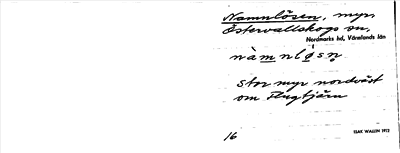 Namnlösen, myr,
Östervallskogs sn,
Nordmarks hd, Värmlands län
nàmnlǿsn̥
stor myr nordväst
om Flugtjärn
16
ISAK WALLIN 1972